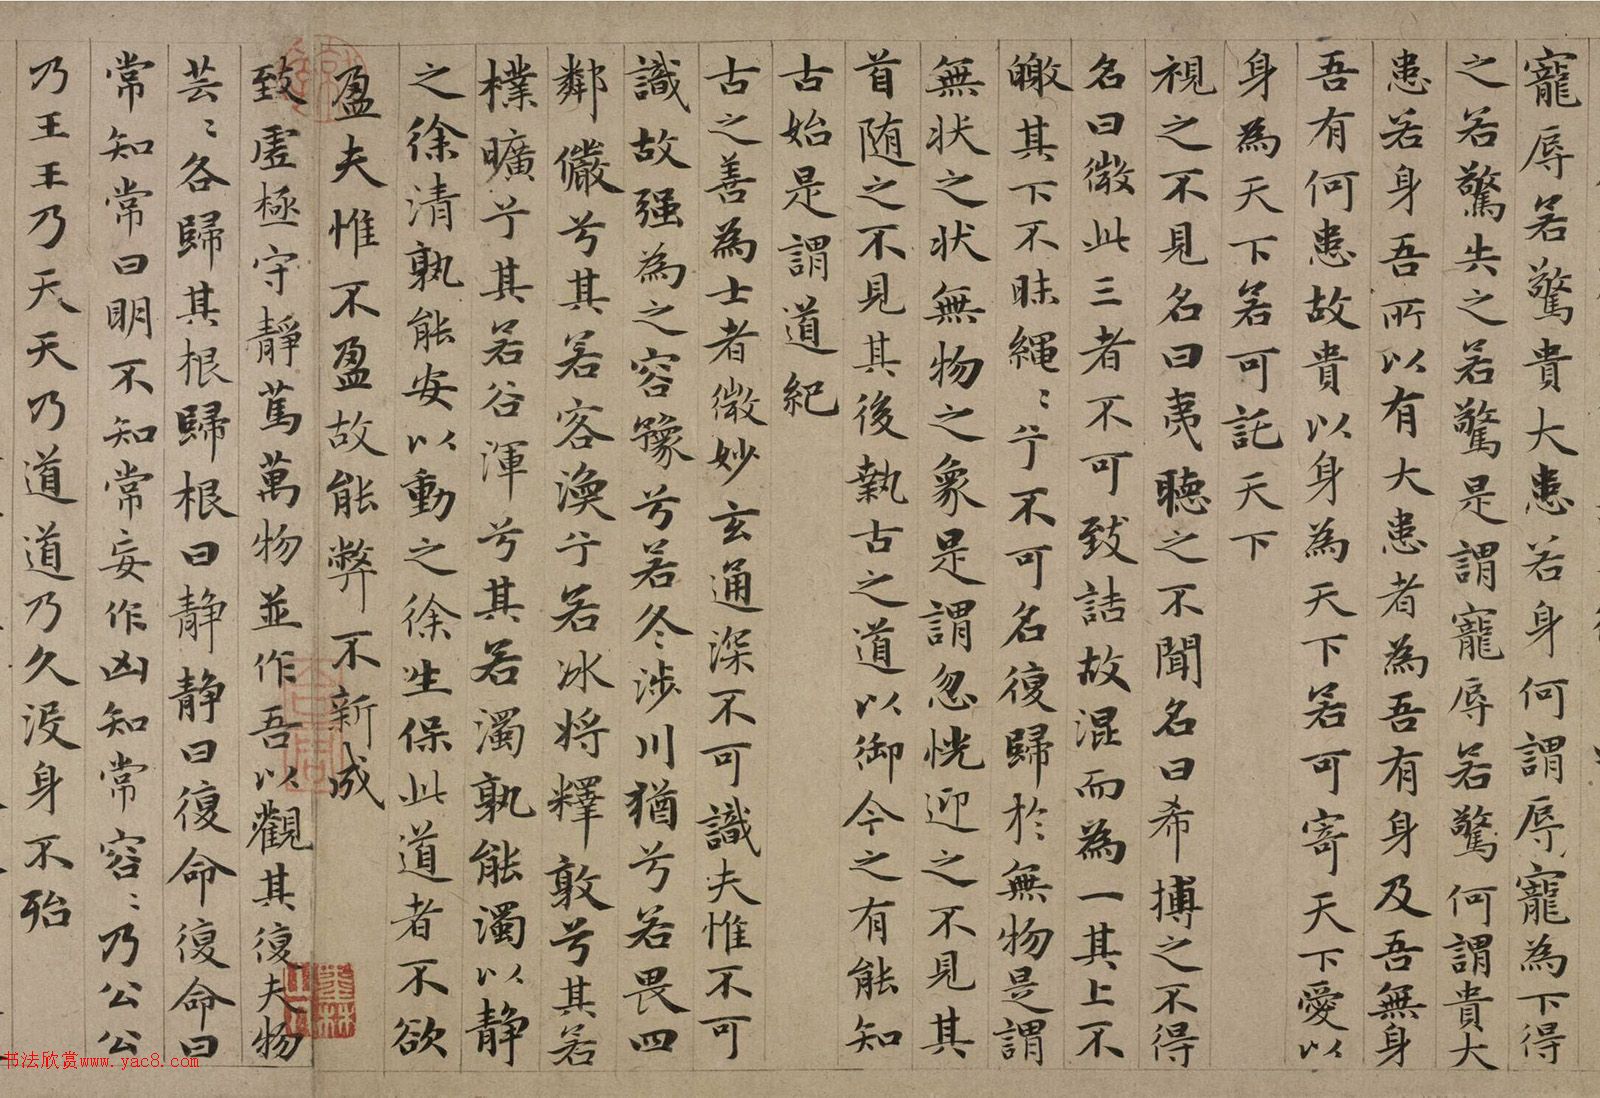 寵辱若驚貴大患若身何謂辱寵為下得
之若驚失之若驚是謂寵辱若驚何謂貴大
患若身吾所以有大患者為吾有身及吾無身
吾有何患故貴以身為天下若可寄天下愛以
身為天下若可託天下
視之不見名曰夷聽之不聞名曰希搏之不得
名曰微此三者不可致詰故混而為一其上不
皦其下不昧繩〻兮不可名復歸於無物是謂
無状之状無物之象是謂忽恍迎之不見其
首随之不見其後執古之道以御今之有能知
古始是謂道紀
古之善為士者微妙玄通深不可識夫惟不可
識故强為之容豫兮若冬涉川猶兮若畏四
鄰儼兮其若客渙兮若冰将釋敦兮其若
樸曠兮其若谷渾兮其若濁孰能濁以静
之徐清孰能安以動之徐生保此道者不欲
盈夫惟不盈故能弊不新成
致虛極守靜萬物並作吾以觀其復夫物
芸〻各歸其根歸根曰静静曰復命復命曰
常知常曰明不知常妄作凶知常容〻乃公公
乃王王乃天天乃道道乃久沒身不殆
书法欣赏www.yac8.com